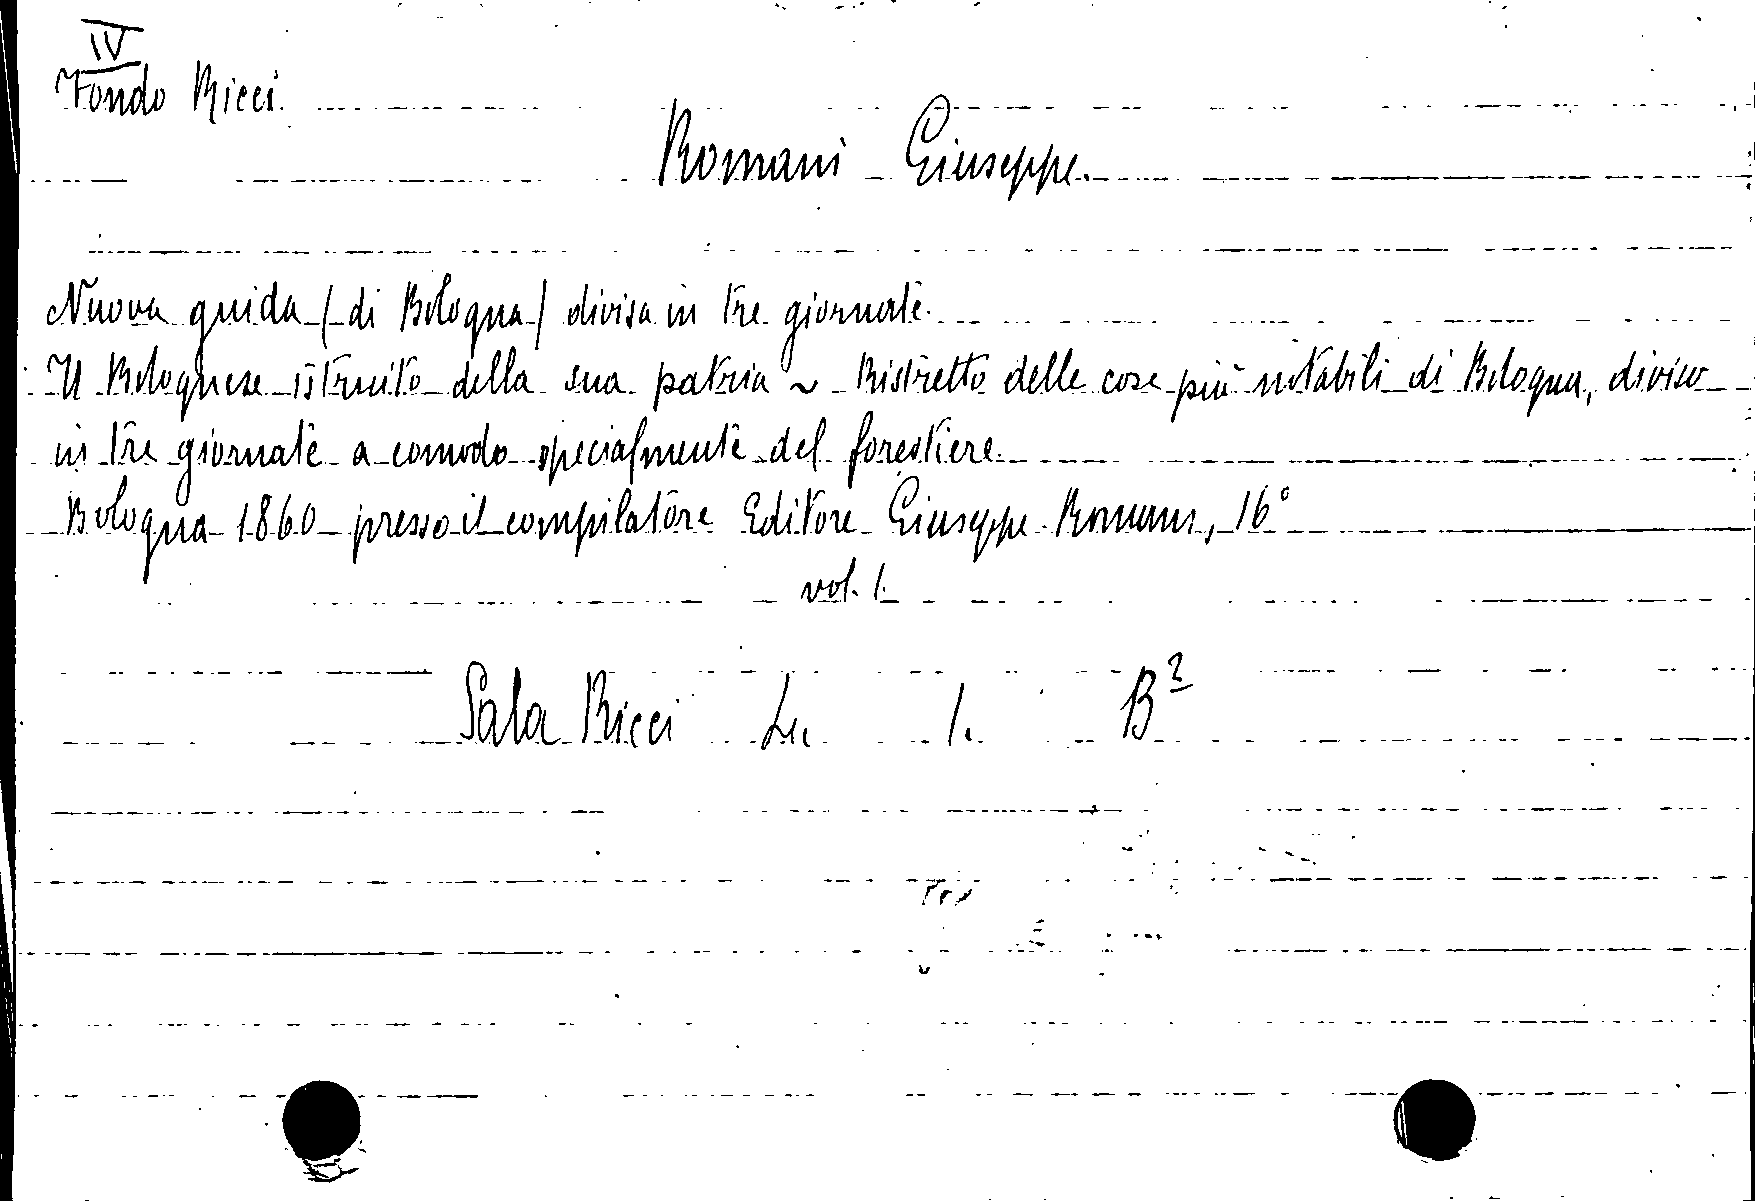 IV
Fondo Ricci
Romani Giuseppe.
Nuova guida (di Bologna) divisa in tre giornate.
Il Bolognese istruito della sua patria ~ Ristretto delle cose più notabili di Bologna, diviso
in tre giornate a comodo specialmente del forestiere.
Bologna 1860 presso il compilatore Editore Giuseppe Romani, 16°
vol. 1.
Sala Ricci 1. B²